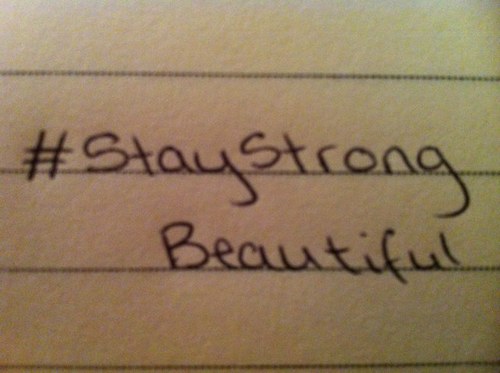 #StayStrong
Beautiful